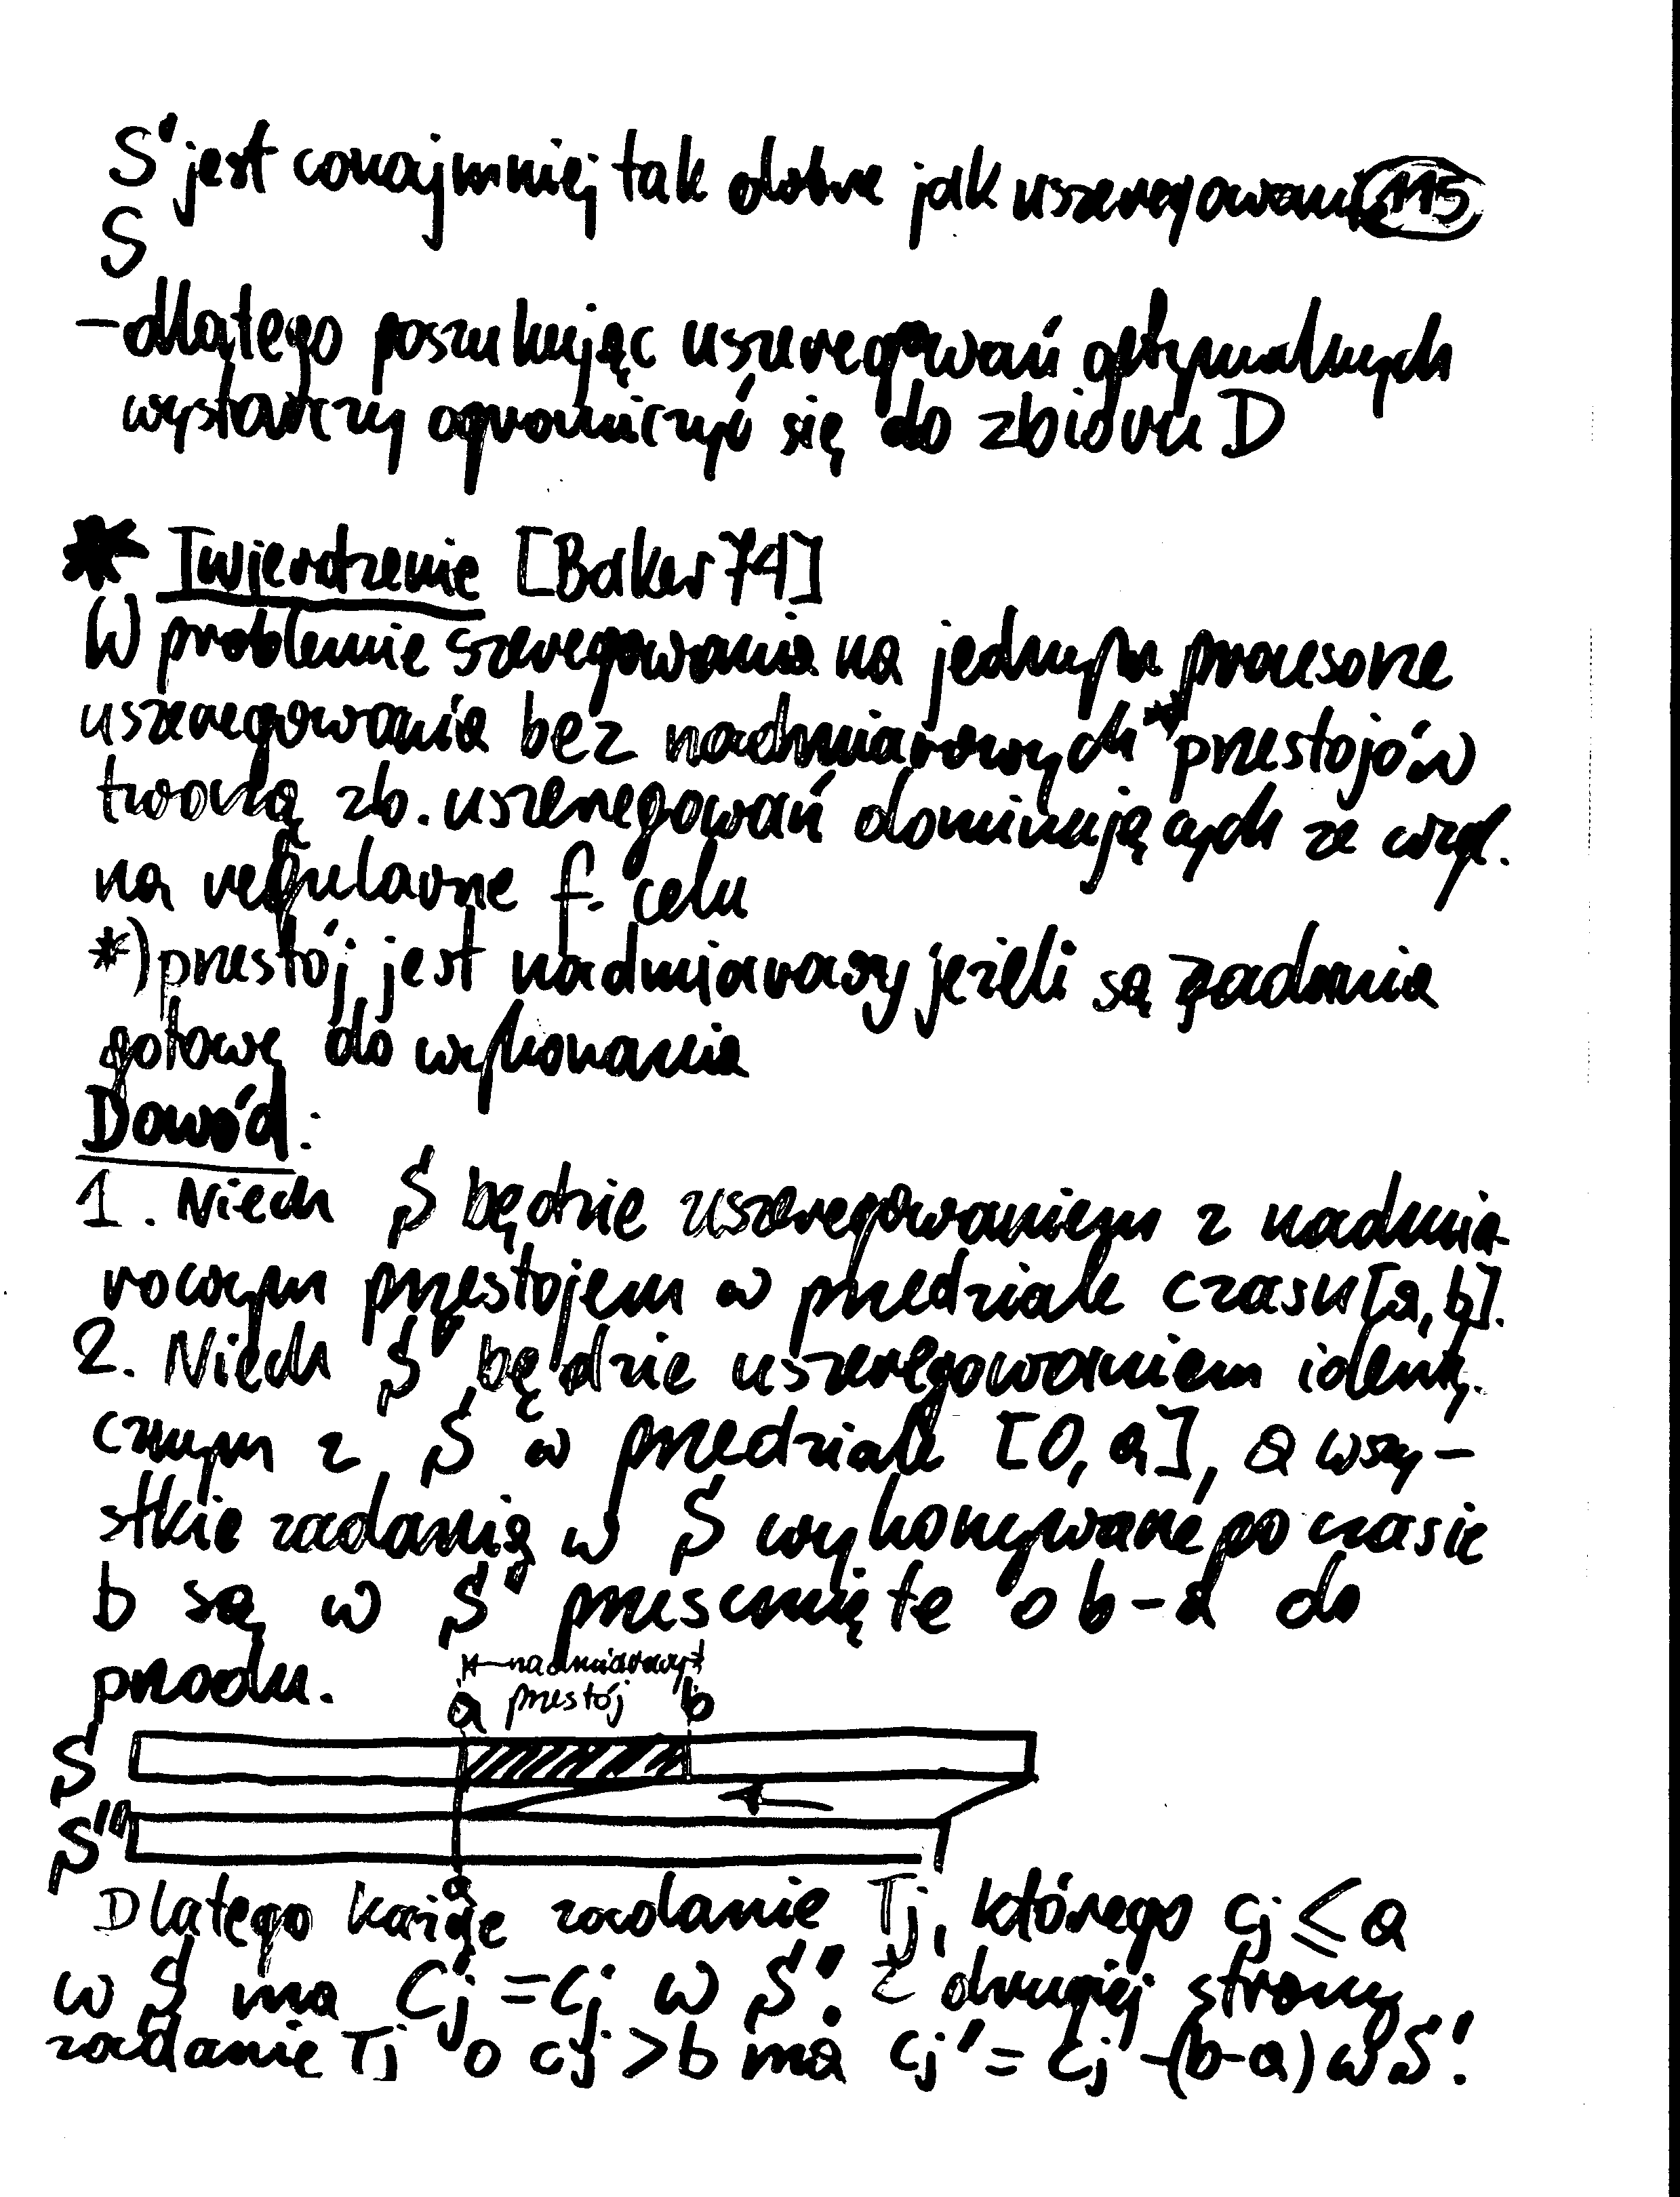 S' jest conajmniej tak dobre jak uszeregowanie 115
S
- dlatego poszukując uszeregowań optymalnych
wystarczy ograniczyć się do zbioru D
* Twierdzenie [Baker 74]
W problemie szeregowania na jednym procesorze
uszeregowania bez nadmiarowych* przestojów
tworzą zb. uszeregowań dominujących ze wzgl.
na regularne f. celu
*) przestój jest nadmiarowy jeżeli są zadania
gotowe do wykonania
Dowód:
1. Niech S będzie uszeregowaniem z nadmia-
rowym przestojem w przedziale czasu [a, b].
2. Niech S' będzie uszeregowaniem identy-
cznym z S w przedziale [0, a], a wszy-
stkie zadania w S wykonywane po czasie
b są w S' przesunięte o b-a do
przodu.
nadmiarowy
a przestój b
S
S'
a
Dlatego każde zadanie Tj, którego cj ≤ a
w S ma Cj' = cj w S'. Z drugiej strony
zadanie Tj o cj > b ma cj' = cj - (b-a) w S'.